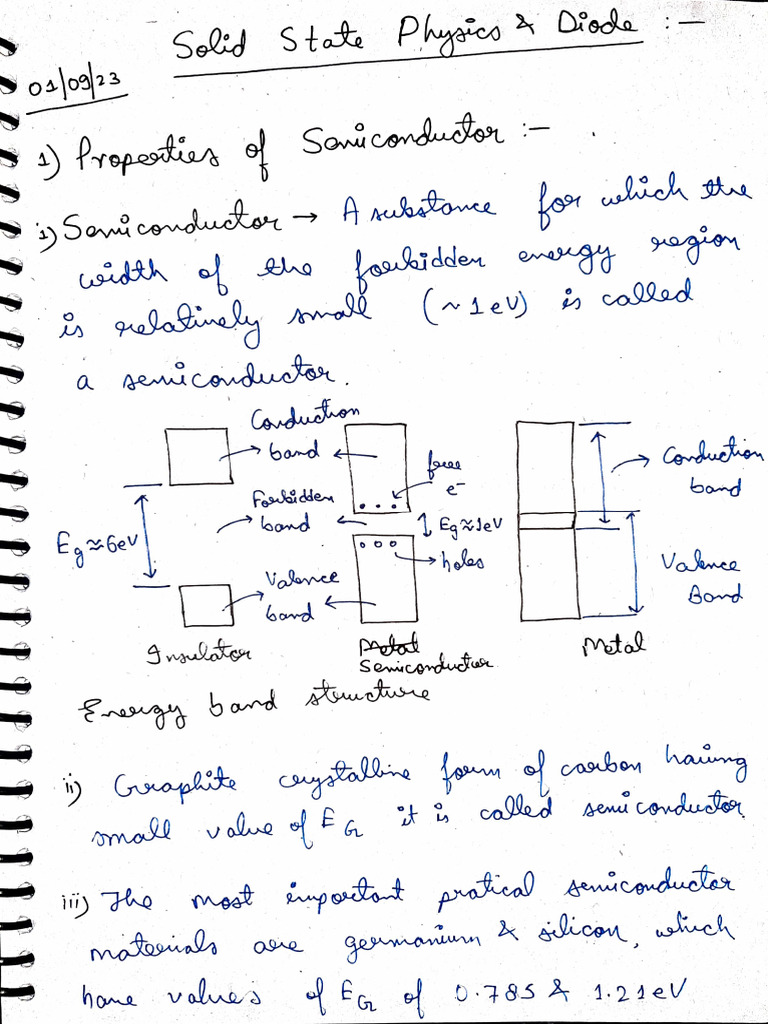 Solid State Physics & Diode :-
01/09/23
1) Properties of Semiconductor :-
i) Semiconductor → A substance for which the
width of the forbidden energy region
is relatively small (~1eV) is called
a semiconductor.
Conduction
band
free
e-
Conduction
band
Forbidden
band
Eg≈6eV
Eg≈1eV
holes
Valence
band
Valence
Band
Insulator
Metal
Semiconductor
Metal
Energy band structure
ii) Graphite crystalline form of carbon having
small value of EG it is called semiconductor.
iii) The most important pratical semiconductor
materials are germanium & silicon, which
have values of EG of 0.785 & 1.21eV